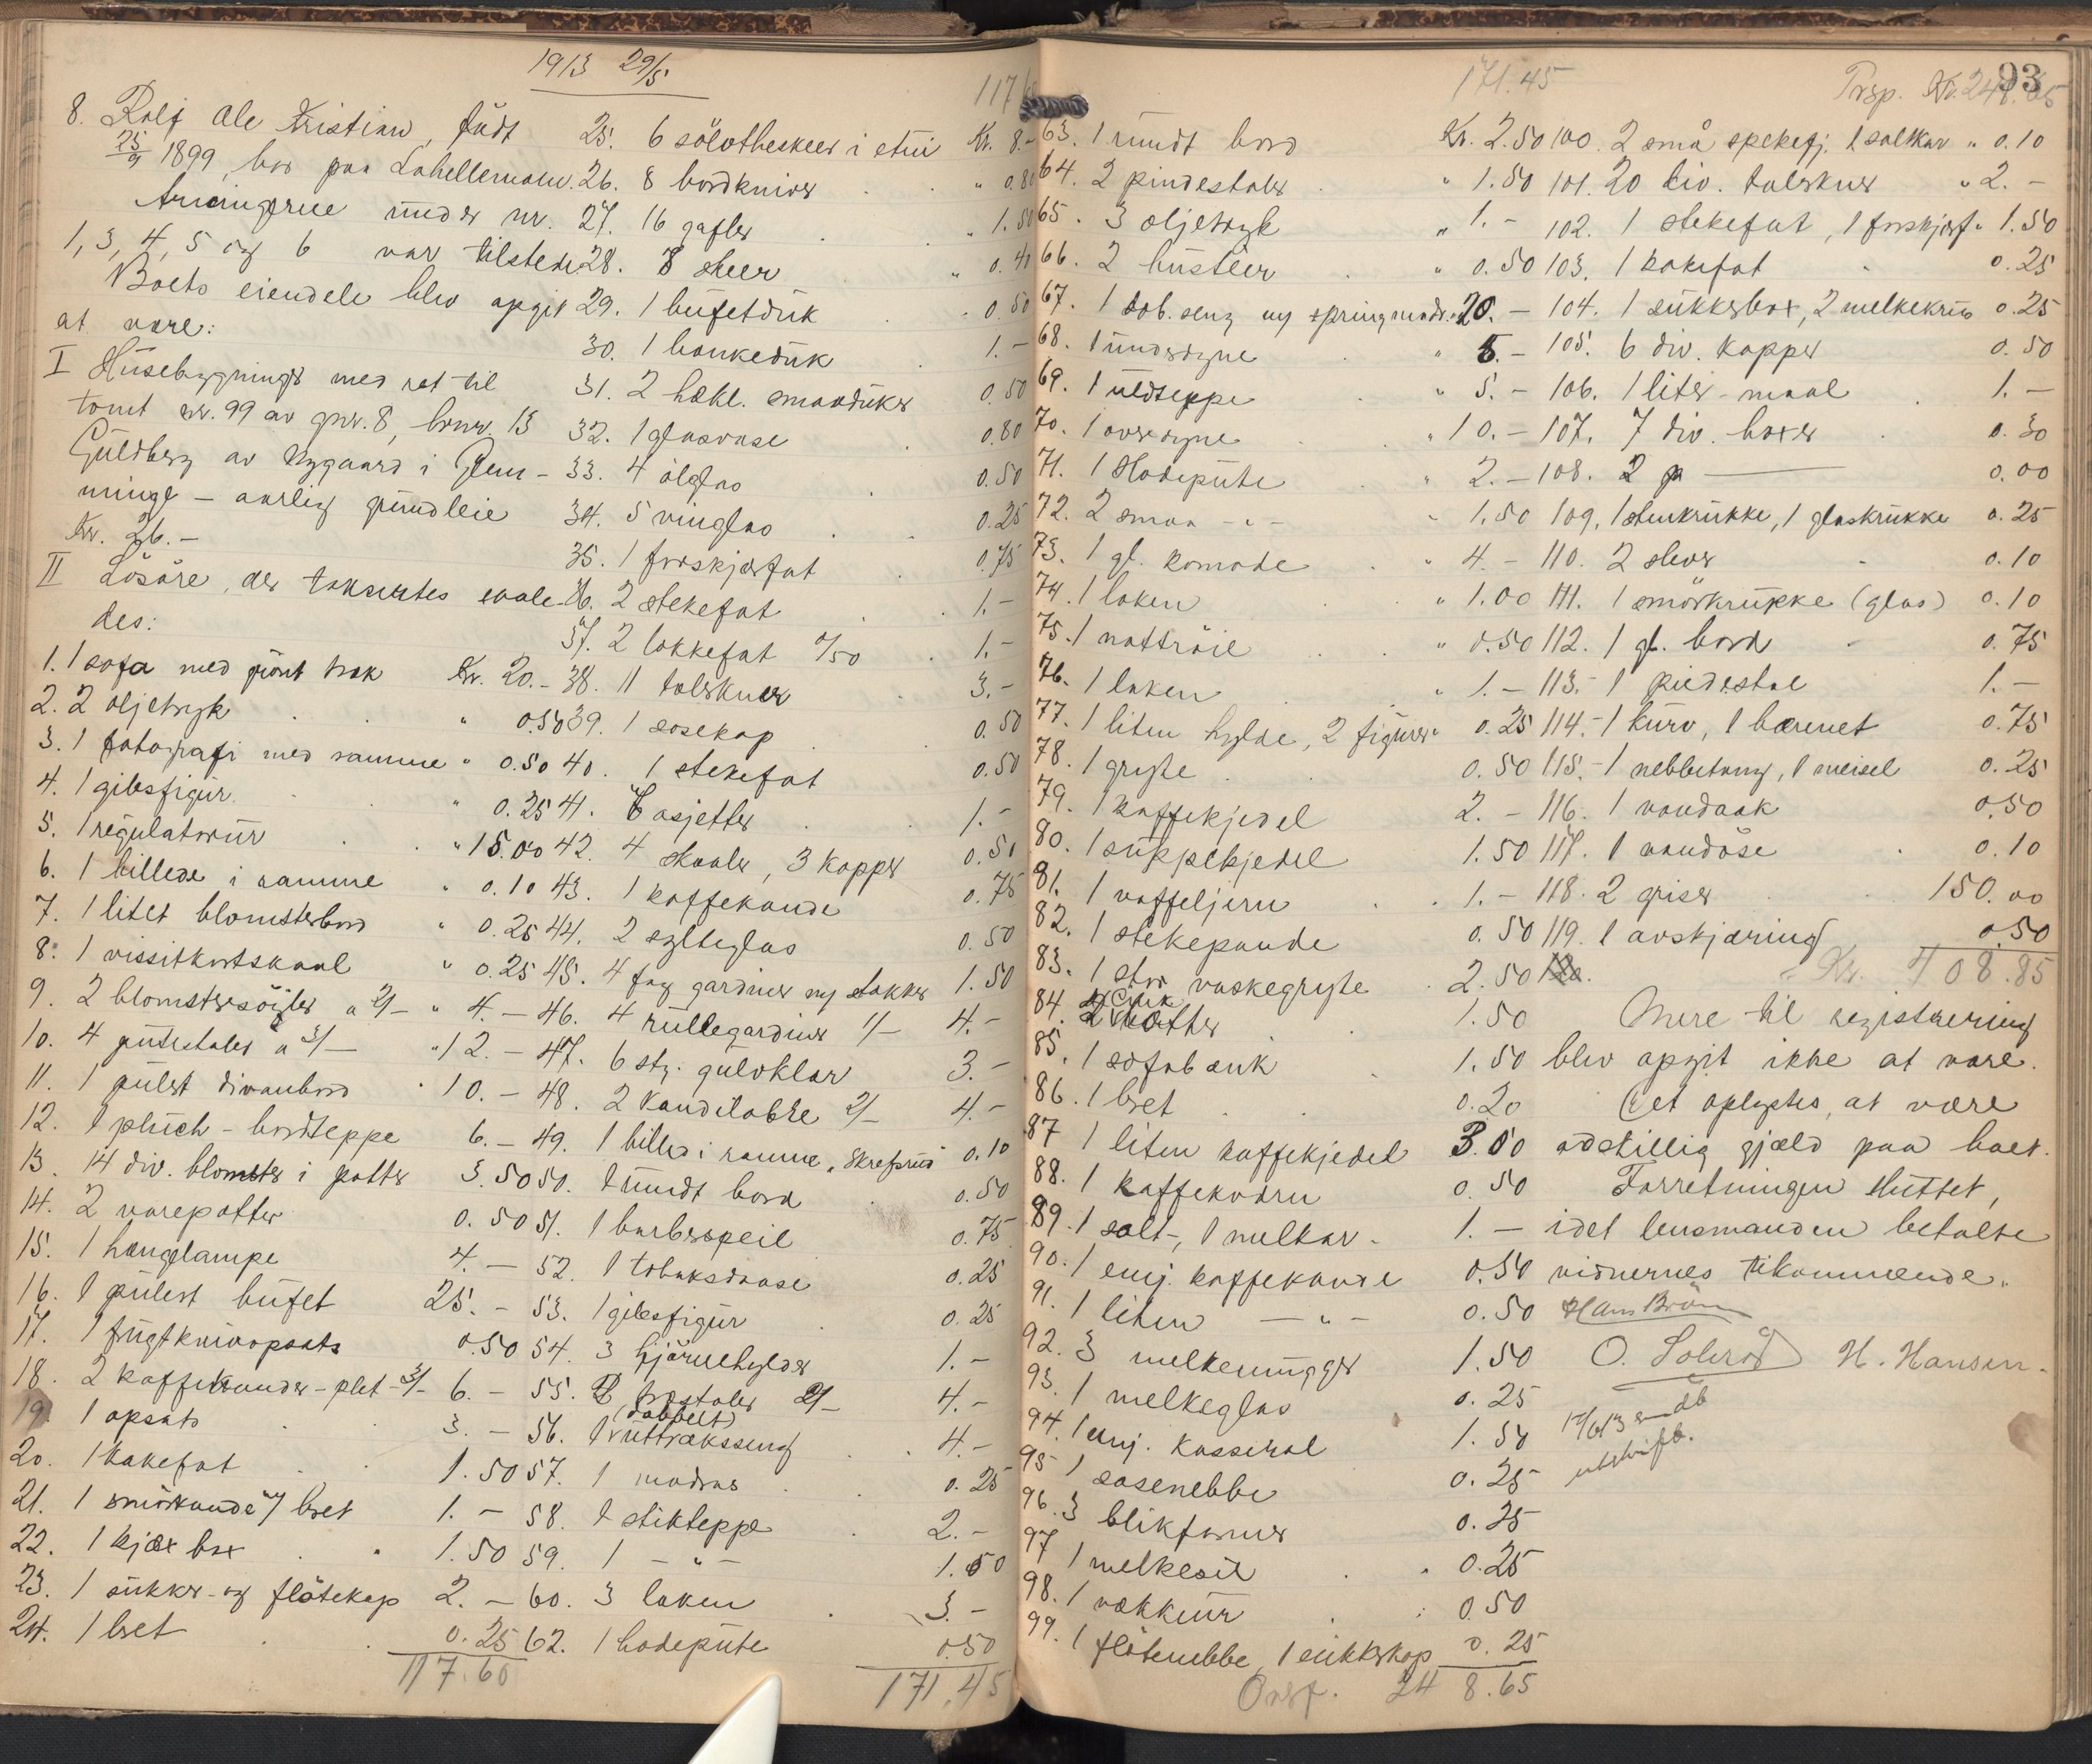 1913 29/5
8. Rolf Ale Kristian, født
25/9 1899, bor paa Lahellemoen.
Arvingerne under nr.
1, 3, 4, 5 og 6 var tilstede
Boets eiendele blev opgit
at være:
I Husebygninger med ret til
tomt nr. 99 av gnr. 8, brnr. 13
Guldberg av Nygaard i Glem-
minge – aarlig grundleie
Kr. 26.-
II Løsøre, der taksertes saale-
des:
1. 1 sofa med grønt træk Kr. 20.-
2. 2 oljetryk " 0.50
3. 1 fotografi med ramme " 0.50
4. 1 gibsfigur " 0.25
5. 1 regulatorur " 15.00
6. 1 billede i ramme " 0.10
7. 1 litet blomsterbord " 0.25
8. 1 vissitkortskaal " 0.25
9. 2 blomstersøiler a 2/- " 4.-
10. 4 pinestoler a 3/- " 12.-
11. 1 pulert divanbord " 10.-
12. 1 plüch-bordteppe 6.-
13. 14 div. blomster i potter 3.50
14. 2 varepotter 0.50
15. 1 hængelampe 4.-
16. 1 pulert bufet 25.-
17. 1 frugtknivopsats 0.50
18. 2 kaffekander-plet-3/- 6.-
19. 1 opsats 3.-
20. 1 kakefat 1.50
21. 1 smørkande m/ bret 1.-
22. 1 kjæx box " 1.50
23. 1 sukker- og fløtekop 2.-
24. 1 bret 0.25
117.60
117.60
25. 6 sølvtheskeer i etui Kr. 8.-
26. 8 bordkniver " 0.80
27. 16 gafler " 1.50
28. 8 skeer " 0.40
29. 1 bufetduk " 0.50
30. 1 bankeduk 1.-
31. 2 hekl. smaaduker 0.50
32. 1 glasvase 0.80
33. 4 ølglas 0.50
34. 5 vinglas 0.25
35. 1 forskjærfat 0.75
36. 2 stekefat 1.-
37. 2 lokkefat a/50 1.-
38. 11 talerkner 3.-
39. 1 sosekop 0.50
40. 1 stekefat 0.50
41. 6 asjetter 1.-
42. 4 skaaler, 3 kopper 0.50
43. 1 kaffekande 0.75
44. 2 sylteglas 0.50
45. 4 fag gardiner m/ stokker 1.50
46. 4 rullegardiner 1/- 4.-
47. 6 stg. gulvklær 3.-
48. 2 kandelabre 2/- 4.-
49. 1 billed i ramme, 0.10
50. 1 rundt bord 0.50
51. 1 barberspeil 0.75
52. 1 tobaksdaase 0.25
53. 1 gibsfigur 0.25
54. 3 hjørnehylder 1.-
55. 2 trestoler 2/- 4.-
56. 1 (dobbelt) uttræksseng 4.-
57. 1 madras 0.25
58. 1 stikteppe 2.-
59. 1 - " - 1.50
60. 3 laken 3.-
62. 1 hodepute 0.50
171.45
171.45
63. 1 rundt bord Kr. 2.50
64. 2 pindestoler " 1.50
65. 3 oljetryk " 1.-
66. 2 bustèer " 0.50
67. 1 dob. seng m/ springmadr. " 20.-
68. 1 underdyne " 5.-
69. 1 uldteppe " 5.-
70. 1 overdyne " 10.-
71. 1 Hodepute " 2.-
72. 2 smaa - " - " 1.50
73. 1 gl. komode " 4.-
74. 1 laken " 1.00
75. 1 nattrøie " 0.50
76. 1 laken " 1.-
77. 1 liten hylde, 2 figurer " 0.25
78. 1 gryte 0.50
79. 1 kaffekjedel 2.-
80. 1 suppekjedel 1.50
81. 1 vaffeljern 1.-
82. 1 stekepande 0.50
83. 1 stor vaskegryte 2.50
84. 2 1.50
85. 1 sofabænk 1.50
86. 1 bret 0.20
87 1 liten kaffekjedel 3.00
88. 1 kaffekværn 0.50
89. 1 salt-, 1 melkar 1.-
90. 1 emj. kaffekande 0.50
91. 1 liten - " - 0.50
92. 3 melkemugger 1.50
93. 1 melkeglas 0.25
94. 1 emj. kasserol 1.50
95 1 sosenebbe 0.25
96. 3 blikformer 0.25
97 1 melkesil " 0.25
98. 1 vækkeur 0.50
99. 1 fløtenebbe, 1 sukkerkop 0.25
Ovsf. 248.65
93
Trsp. Kr. 248.65
100. 2 små spekefj. 1 saltkar " 0.10
101. 20 div. talerkner " 2.-
102. 1 stekefat, 1 forskjærf. " 1.50
103. 1 kakefat 0.25
104. 1 sukkerbox, 2 melkekrus 0.25
105. 6 div. kopper 0.50
106. 1 liter-maal 1.-
107. 7 div. boxer 0.30
108. 2 0.00
109. 1 stenkrukke, 1 glaskrukke 0.25
110. 2 slever 0.10
111. 1 smørkrukke (glas) 0.10
112. 1 gl. bord 0.75
113. 1 piedestal 1.-
114. 1 kurv, 1 bærenet 0.75
115. 1 nebbetang, 1 meisel 0.25
116. 1 vandaak 0.50
117. 1 vandøse 0.10
118. 2 griser 150.00
119. 1 avskjæring 0.50
Kr. 408.85
Mere til registrering
blev opgit ikke at være.
Det oplystes, at være
adskillig gjæld paa boet.
Forretningen sluttet,
idet lensmanden betalte
vidnernes tilkommende.
Hans Brøn
O. Solerød H. Hansen.
utskrift.